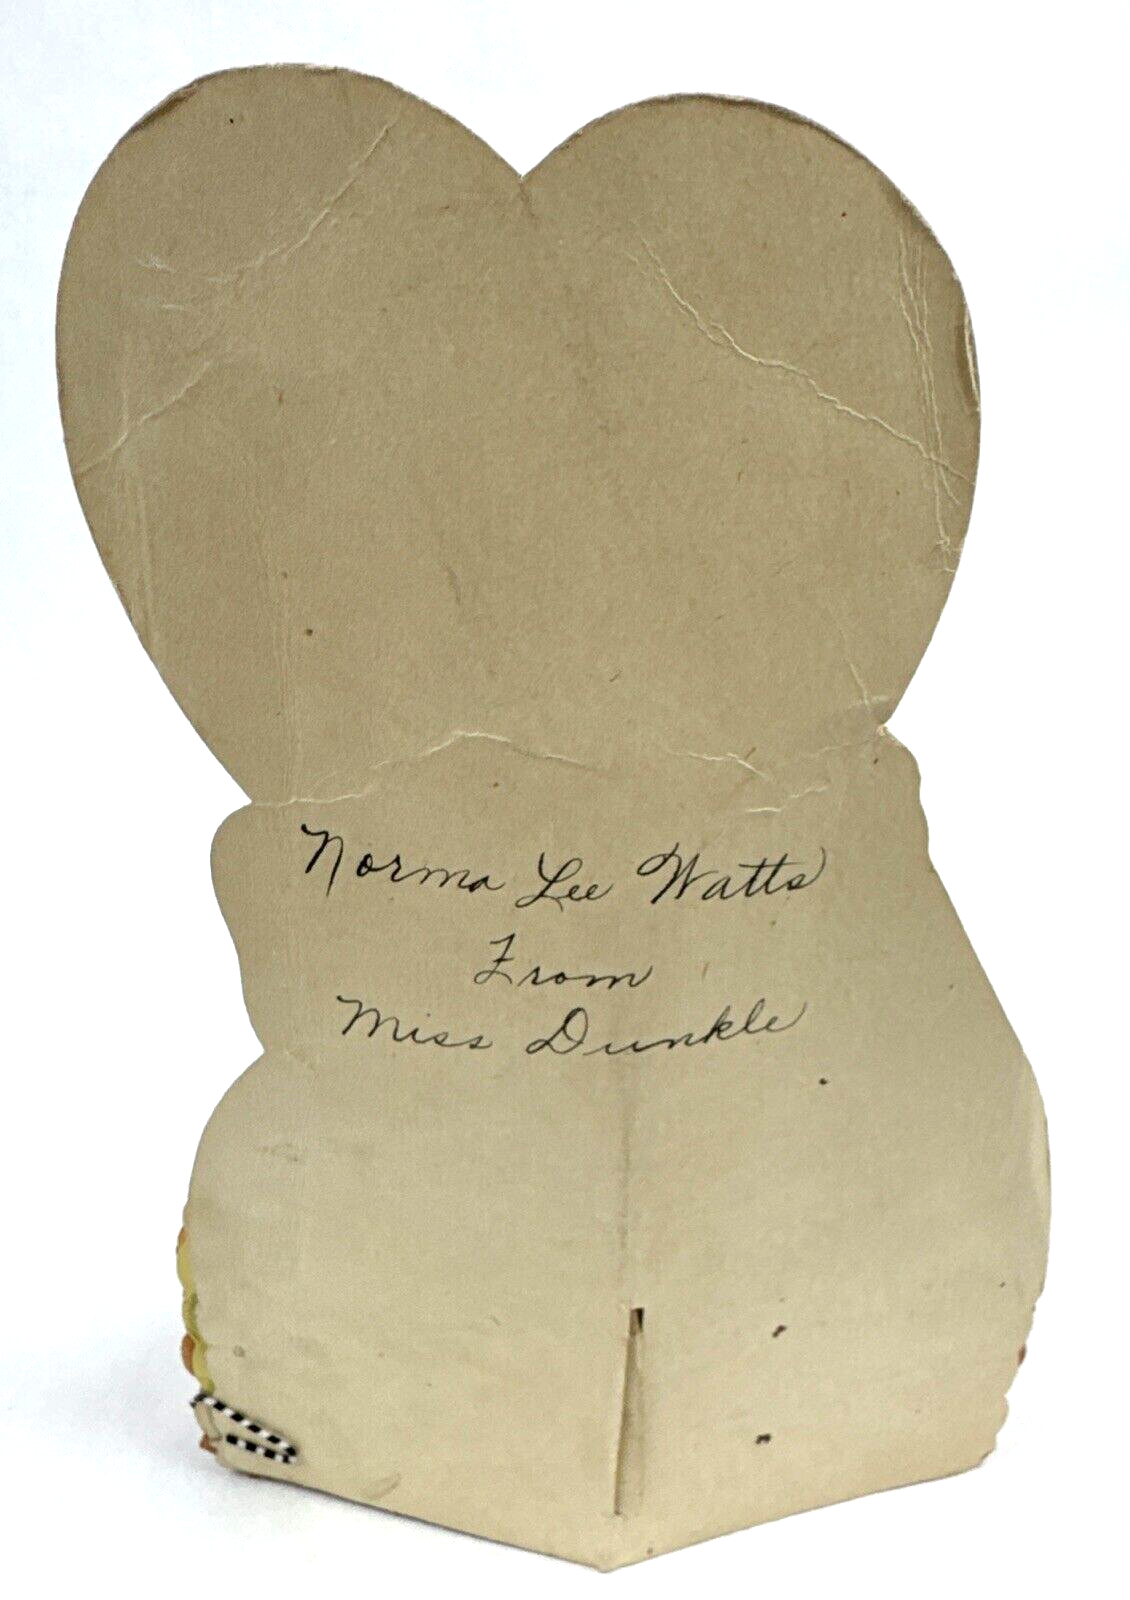 Norma Lee Watts
From
Miss Dunkle